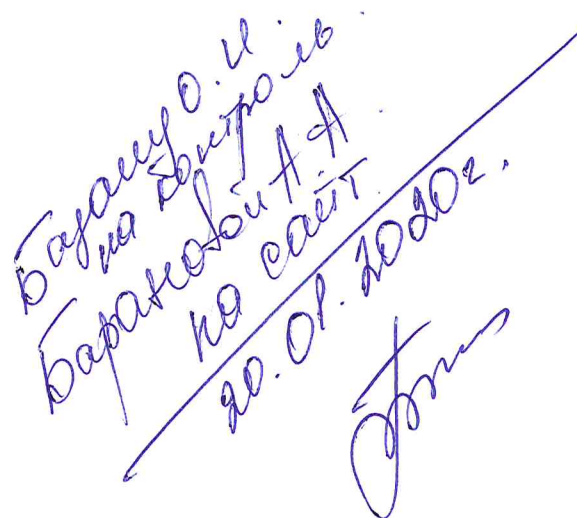 Базану О.И.
на контроль
Барановой А.А.
на сайт
20.01.2020г.